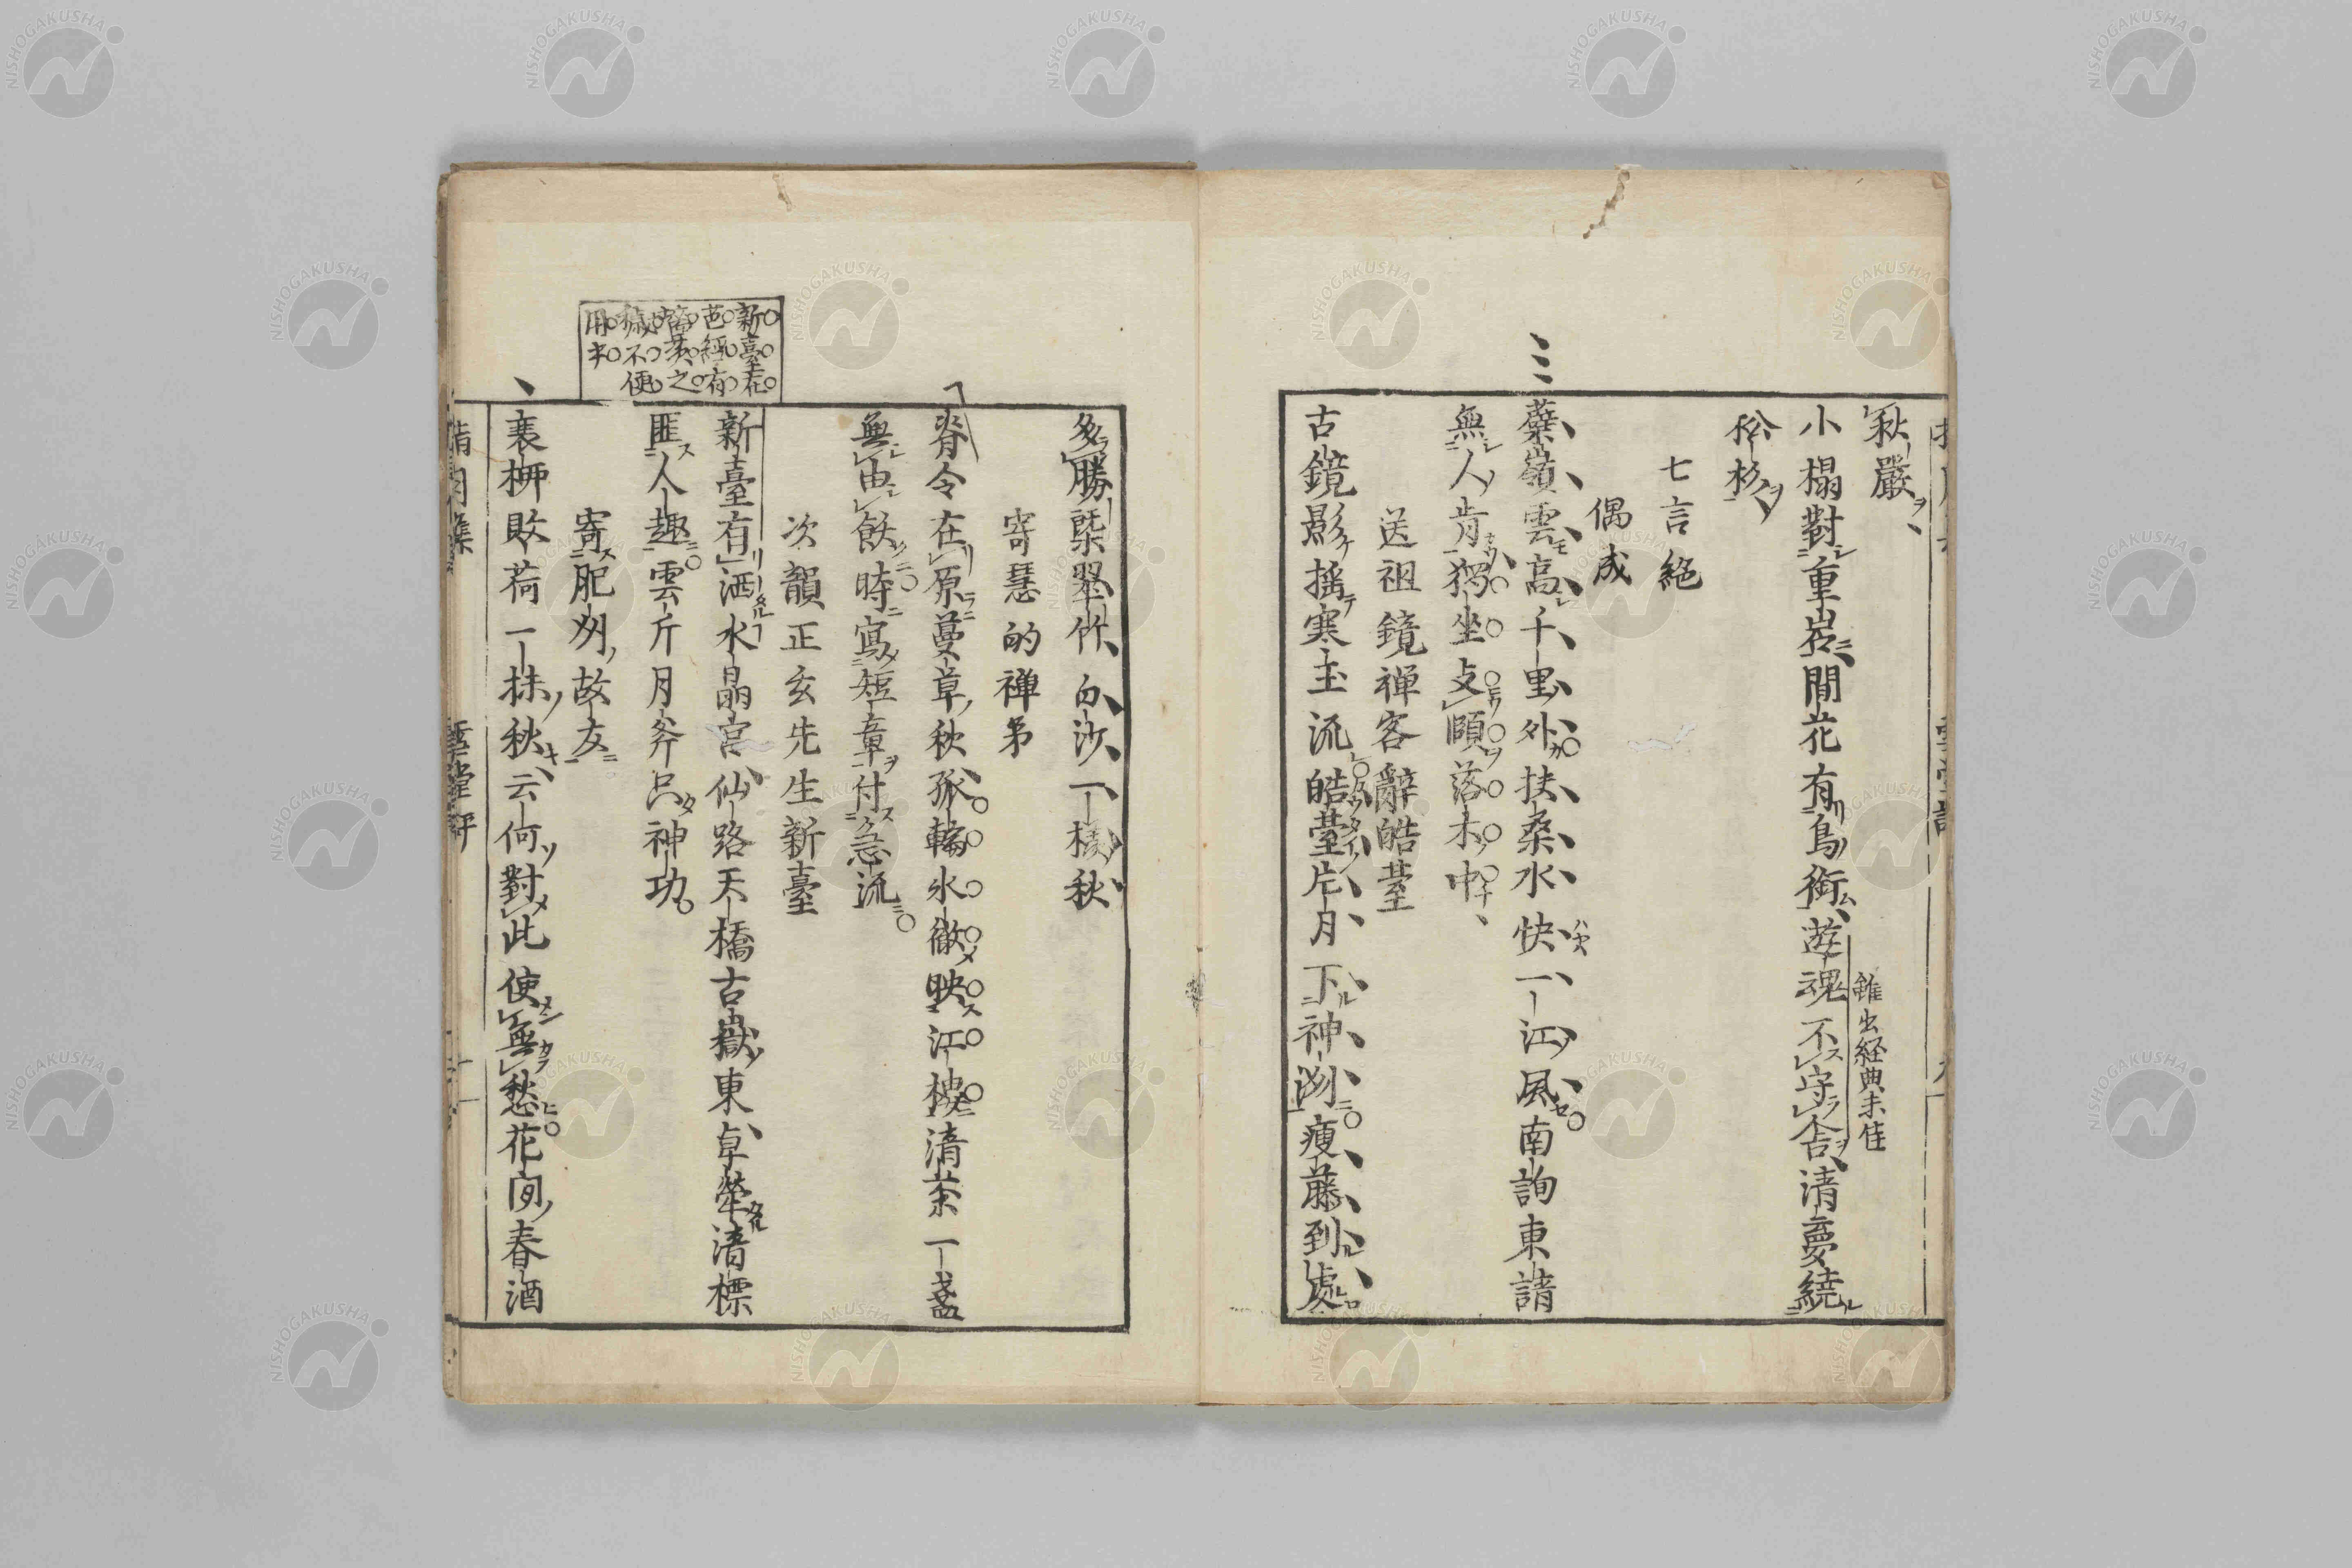 秋巖
小榻對重崧間花有鳥銜遊魂不守舍清夢繞
雖出経典未佳
松杉
七言絶
偶成
蘗嶺雲高千里外扶桑水快一江風南詢東請
無人肯獨坐支頤落木中
送祖鏡禅客辭皓臺
古鏡影揺寒玉流皓臺片月下神洲瘦藤到處
多勝槩翠竹白沙一様秋
寄慧的禅弟
脊令在原蔓草秋孤輪氷徹映江楼清茶一盞
無由飲時寫短章付急流
次韻正玄先生新臺
新臺花
芭經有
籧蒢之
穢不便
用本
新臺有洒水晶宮仙路天橋古嶽東卓犖清標
匪人趣雲斤月斧只神功
寄肥州故友
衰柳敗荷一抹秋云何對此使無愁花間春酒